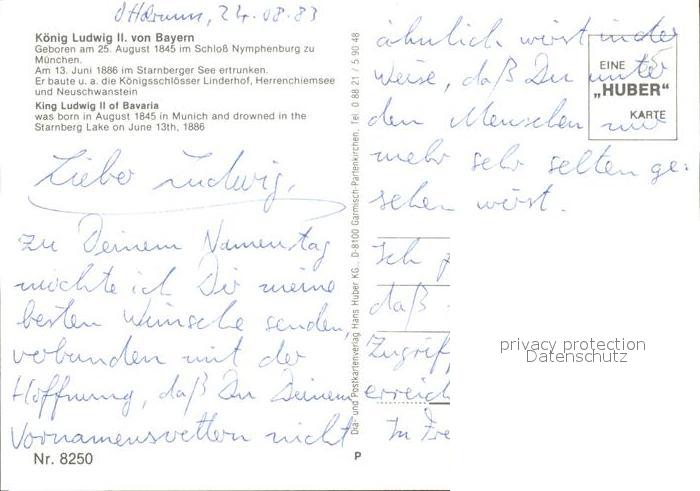 Ottobrunn, 24.08.83
König Ludwig II. von Bayern
Geboren am 25. August 1845 im Schloß Nymphenburg zu
München.
Am 13. Juni 1886 im Starnberger See ertrunken.
Er baute u. a. die Königsschlösser Linderhof, Herrenchiemsee
und Neuschwanstein
King Ludwig II of Bavaria
was born in August 1845 in Munich and drowned in the
Starnberg Lake on June 13th, 1886
Lieber Ludwig,
zu Deinem Namenstag
möchte ich Dir meine
besten Wünsche senden,
verbunden mit der
Hoffnung, daß Du Deinem
Vornamensvettern nicht
Nr. 8250
Dia- und Postkartenverlag Hans Huber KG., D-8100 Garmisch-Partenkirchen, Tel. 0 88 21 / 5 90 48
P
ähnlich wirst in der
Weise, daß Du unter
den Menschen nur
mehr sehr selten ge-
sehen wirst.
Ich
daß
Zugriff
erreich
In Fre
EINE
„HUBER“
KARTE
privacy protection
Datenschutz